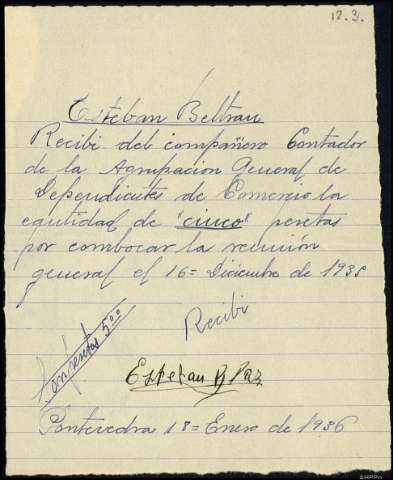 12.3.
Esteban Beltrau
Recibi del compañero Contador
de la Agrupacion General de
Dependientes de Comercio la
cantidad de "cinco" pesetas
por combocar la reunion
general el 16= Diciembre de 1935
Recibi
Son pesetas 5'00
Esteban B Paz
Pontevedra 18= Enero de 1936